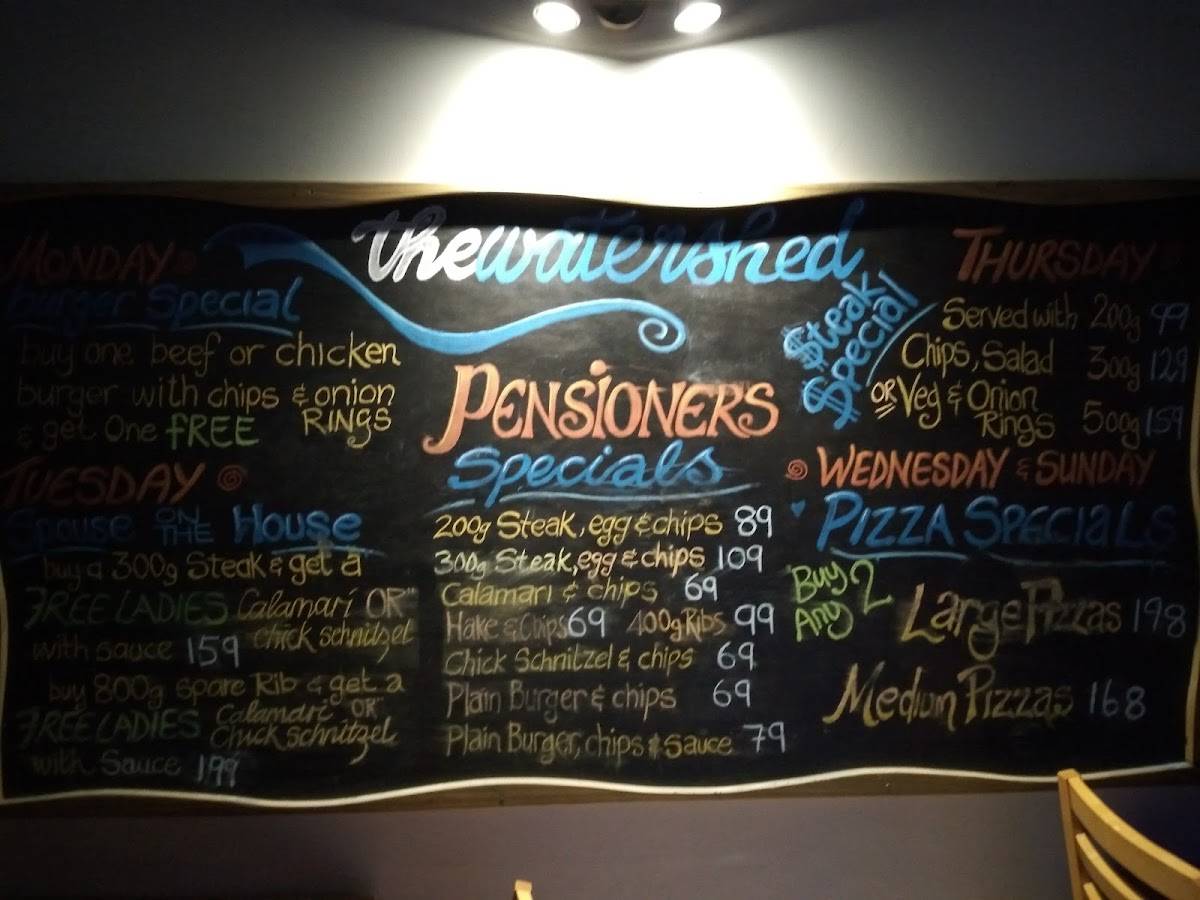 thewatershed
MONDAY
burger Special
buy one beef or chicken
burger with chips & onion
RINGS
& get One FREE
TUESDAY
Spouse ON THE House
buy a 300g Steak & get a
FREE LADIES Calamari OR"
with sauce 159 chick schnitzel
buy 800g spare Rib & get a
FREE LADIES Calamari "OR"
Chick schnitzel
with Sauce 199
PENSIONER'S
Specials
200g Steak, egg & chips 89
300g Steak, egg & chips 109
Calamari & chips 69
Hake & Chips 69 400g Ribs 99
Chick Schnitzel & chips 69
Plain Burger & chips 69
Plain Burger, chips & Sauce 79
THURSDAY
$teak
$pecial
Served with 200g 99
Chips, Salad 300g 129
OR Veg & Onion
Rings 500g 159
WEDNESDAY & SUNDAY
PIZZA SPECIALS
"Buy
Any 2"
Large Pizzas 198
Medium Pizzas 168